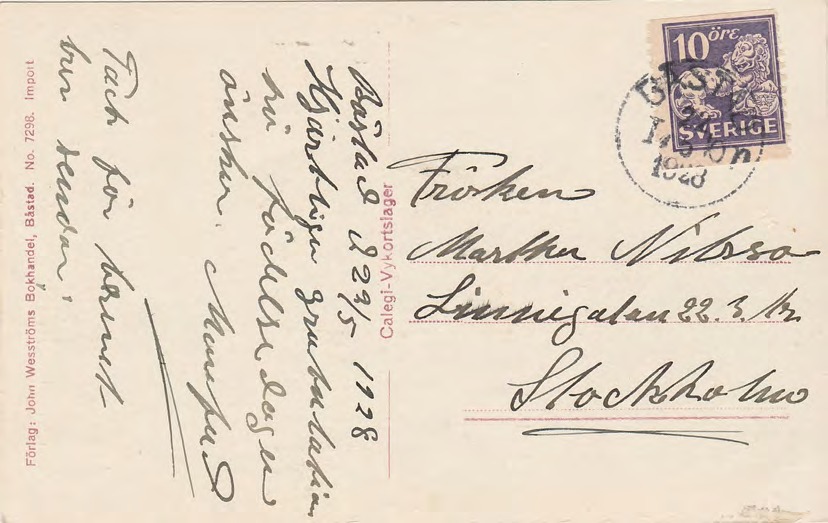 Förlag: John Wesströms Bokhandel, Båstad. No. 7298. Import
Båstad d 29/5 1928
Hjärtliga Gratulation
på födelsedagen
önskar
Tack för
Calegi-Vykortslager
10 öre
SVERIGE
BÅSTAD
1928
Fröken
Martha Nilsson
Linnégatan 22. 3. tr.
Stockholm